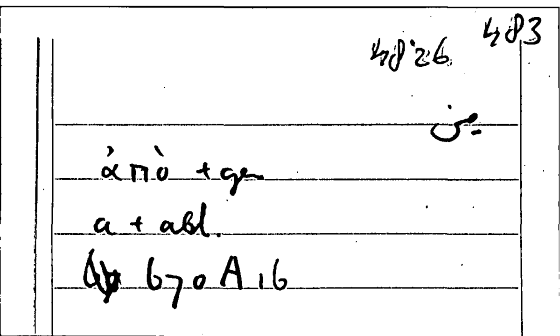 483
4826
من
ἀπὸ + gen
a + abl.
670 A 16